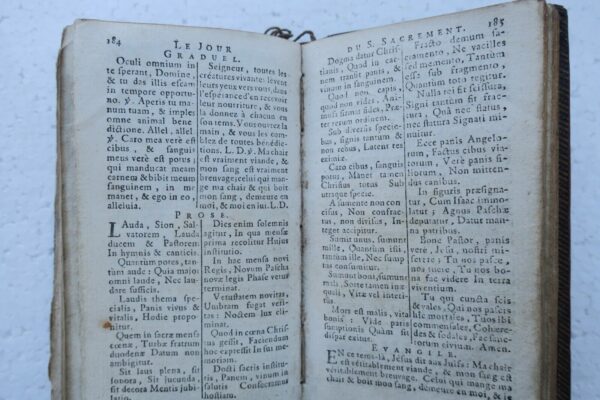 184
LE JOUR
GRADUEL.
Oculi omnium in
te sperant, Domine,
& tu das illis escam
in tempore opportu-
no. ℣. Aperis tu ma-
num tuam, & imples
omne animal bene
dictione. Allel, allel.
℣. Caro mea verè est
cibus, & sanguis
meus verè est potus;
qui manducat meam
carnem & bibit meum
sanguinem, in me
manet, & ego in eo,
alleluia.
Seigneur, toutes les
créatures vivante levent
leurs yeux vers vous, dans
l'espérance d'en recevoir
leur nourriture; & vous
la donnez à chacun en
son tems. Vous ouvrez la
main, & vous les com-
blez de toutes bénédic-
tions. L. D. ℣. Ma chair
est vraiment viande, &
mon sang est vraiment
breuvage; celui qui man-
ge ma chair & qui boit
mon sang, demeure en
moi & moi en lui. L. D.
PROSE.
LAuda, Sion, Sal-
vatorem, Lauda
ducem & Pastorem,
In hymnis & canticis.
Quantùm potes, tan-
tùm aude: Quia major
omni laude, Nec lau-
dare sufficis.
Laudis thema spe-
cialis, Panis vivus &
vitalis, Hodie propo-
nitur.
Quem in sacræ mensâ
cœnæ, Turbæ fratrum
duodenæ Datum non
ambigitur.
Sit laus plena, sit
sonora, Sit jucunda,
sit decora Mentis jubi-
Dies enim solemnis
agitur, In quâ mensæ
prima recolitur Hujus
institutio.
In hac mensâ novi
Regis, Novum Pascha
novæ legis Phase vetus
terminat.
Vetustatem novitas,
Umbram fugat veri-
tas: Noctem lux eli-
minat.
Quod in cœnâ Chris-
tus gessit, Faciendum
hoc expressit In sui me-
moriam.
Docti sacris institu-
tis, Panem, vinum in
salutis Consecramus
hostiam.
185
DU S. SACREMENT.
Dogma datur Chris-
tianis, Quod in car-
nem transit panis, &
vinum in sanguinem.
Quod non capis,
quod non vides, Ani-
mosa firmat fides, Præ-
ter rerum ordinem.
Sub diversis specie-
bus, signis tantùm &
non rebus, Latent res
eximiæ.
Caro cibus, sanguis
potus, Manet tamen
Christus totus Sub
utraque specie.
A sumente non con-
cisus, Non confrac-
tus, non divisus, In-
teger accipitur.
Sumit unus, sumunt
mille, Quantùm isti,
tantùm ille, Nec sump-
tus consumitur.
Sumunt boni, sumunt
mali, Sorte tamen inæ-
quali, Vitæ vel interi-
tus.
Mors est malis, vita
bonis: Vide paris
sumptionis Quàm sit
dispar exitus.
Fracto demum sa-
cramento, Ne vacilles
sed memento, Tantum
esse sub fragmento,
Quantùm toto tegitur.
Nulla rei fit scissura,
Signi tantùm fit frac-
tura, Quâ nec status,
nec statura Signati mi-
nuitur.
Ecce panis Angelo-
rum, Factus cibus via-
torum, Verè panis fi-
liorum, Non mitten-
dus canibus.
In figuris præsigna-
tur, Cum Isaac immo-
latur; Agnus Paschæ
deputatur, Datur man-
na patribus.
Bone Pastor, panis
vere, Jesu, nostri mi-
serere; Tu nos pasce,
nos tuere, Tu nos bo-
na fac videre In terra
viventium.
Tu qui cuncta scis
& vales, Qui nos pascis
hîc mortales, Tuos ibi
commensales, Cohære-
des & sodales, Fac sanc-
torum civium. Amen.
EVANGILE.
EN ce tems-là, Jésus dit aux Juifs: Ma chair
est véritablement viande, & mon sang est
véritablement breuvage. Celui qui mange ma
chair & boit mon sang, demeure en moi, & je